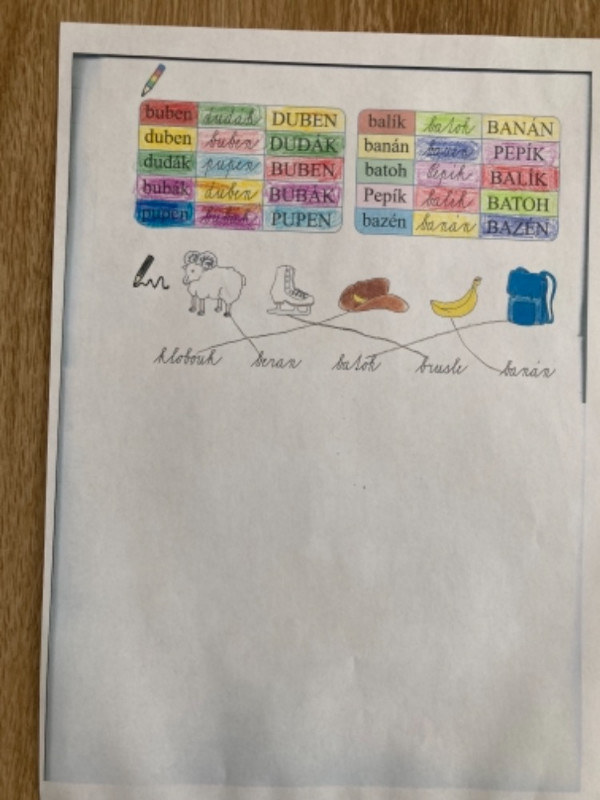 buben dudák DUBEN
duben buben DUDÁK
dudák pupen BUBEN
bubák duben BUBÁK
pupen bubák PUPEN
balík batoh BANÁN
banán bazén PEPÍK
batoh Pepík BALÍK
Pepík balík BATOH
bazén banán BAZÉN
klobouk beran batoh brusle banán